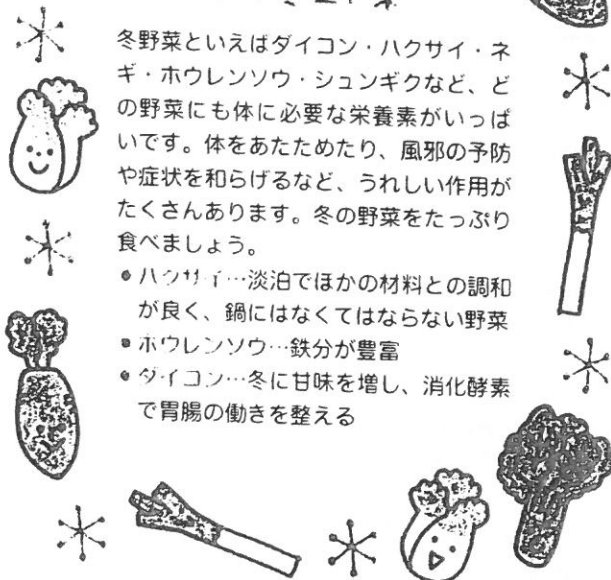 冬野菜といえばダイコン・ハクサイ・ネ
ギ・ホウレンソウ・シュンギクなど、ど
の野菜にも体に必要な栄養素がいっぱ
いです。体をあたためたり、風邪の予防
や症状を和らげるなど、うれしい作用が
たくさんあります。冬の野菜をたっぷり
食べましょう。
●ハクサイ…淡泊でほかの材料との調和
が良く、鍋にはなくてはならない野菜
●ホウレンソウ…鉄分が豊富
●ダイコン…冬に甘味を増し、消化酵素
で胃腸の働きを整える